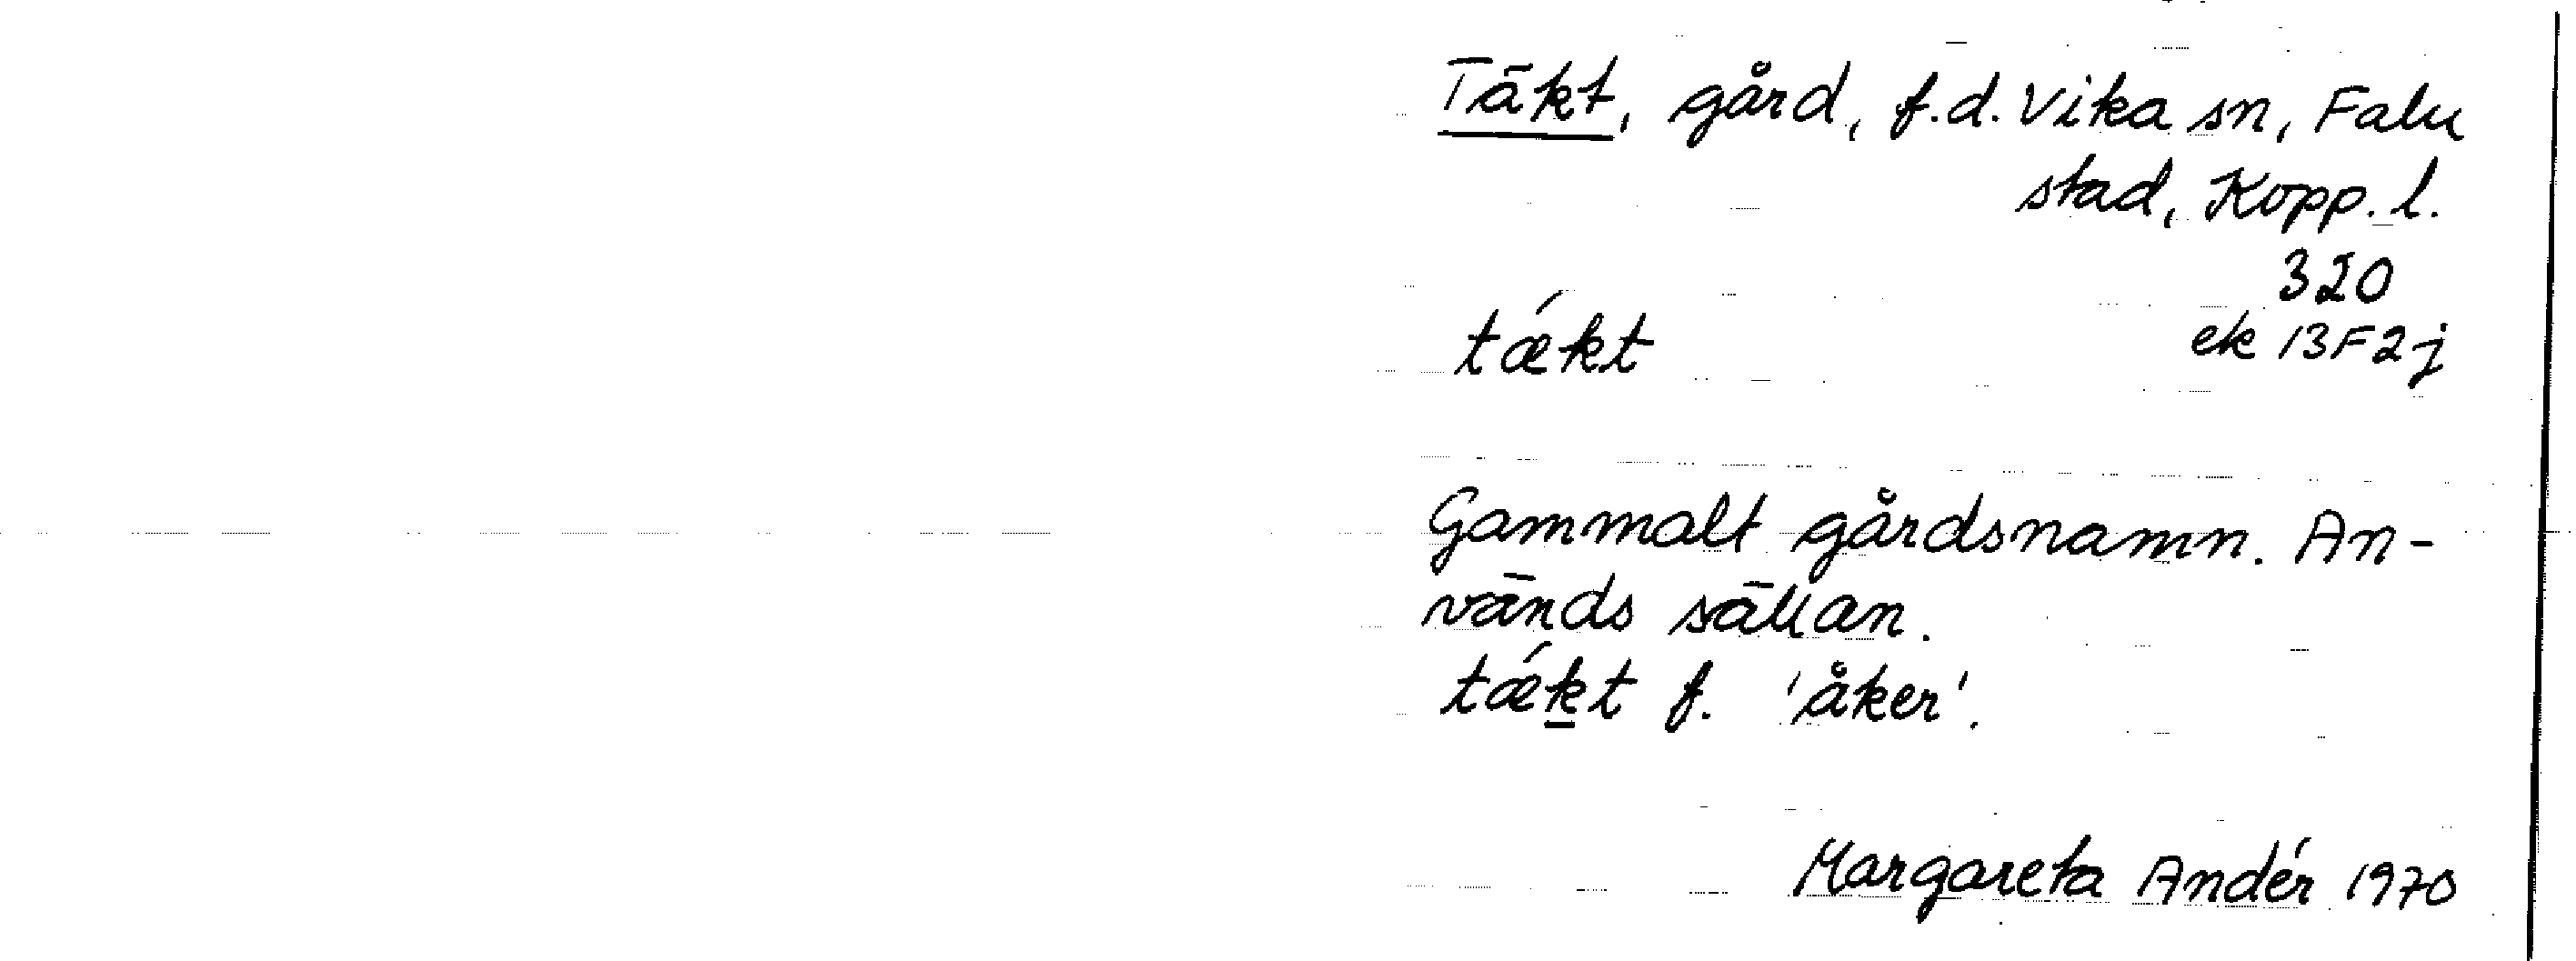 Täkt, gård, f.d. Vika sn, Falu
stad, Kopp. l.
320
tǽkt ek 13F2j
Gammalt gårdsnamn. An-
vänds sällan.
tǽḵt f. 'åker'.
Margareta Andér 1970